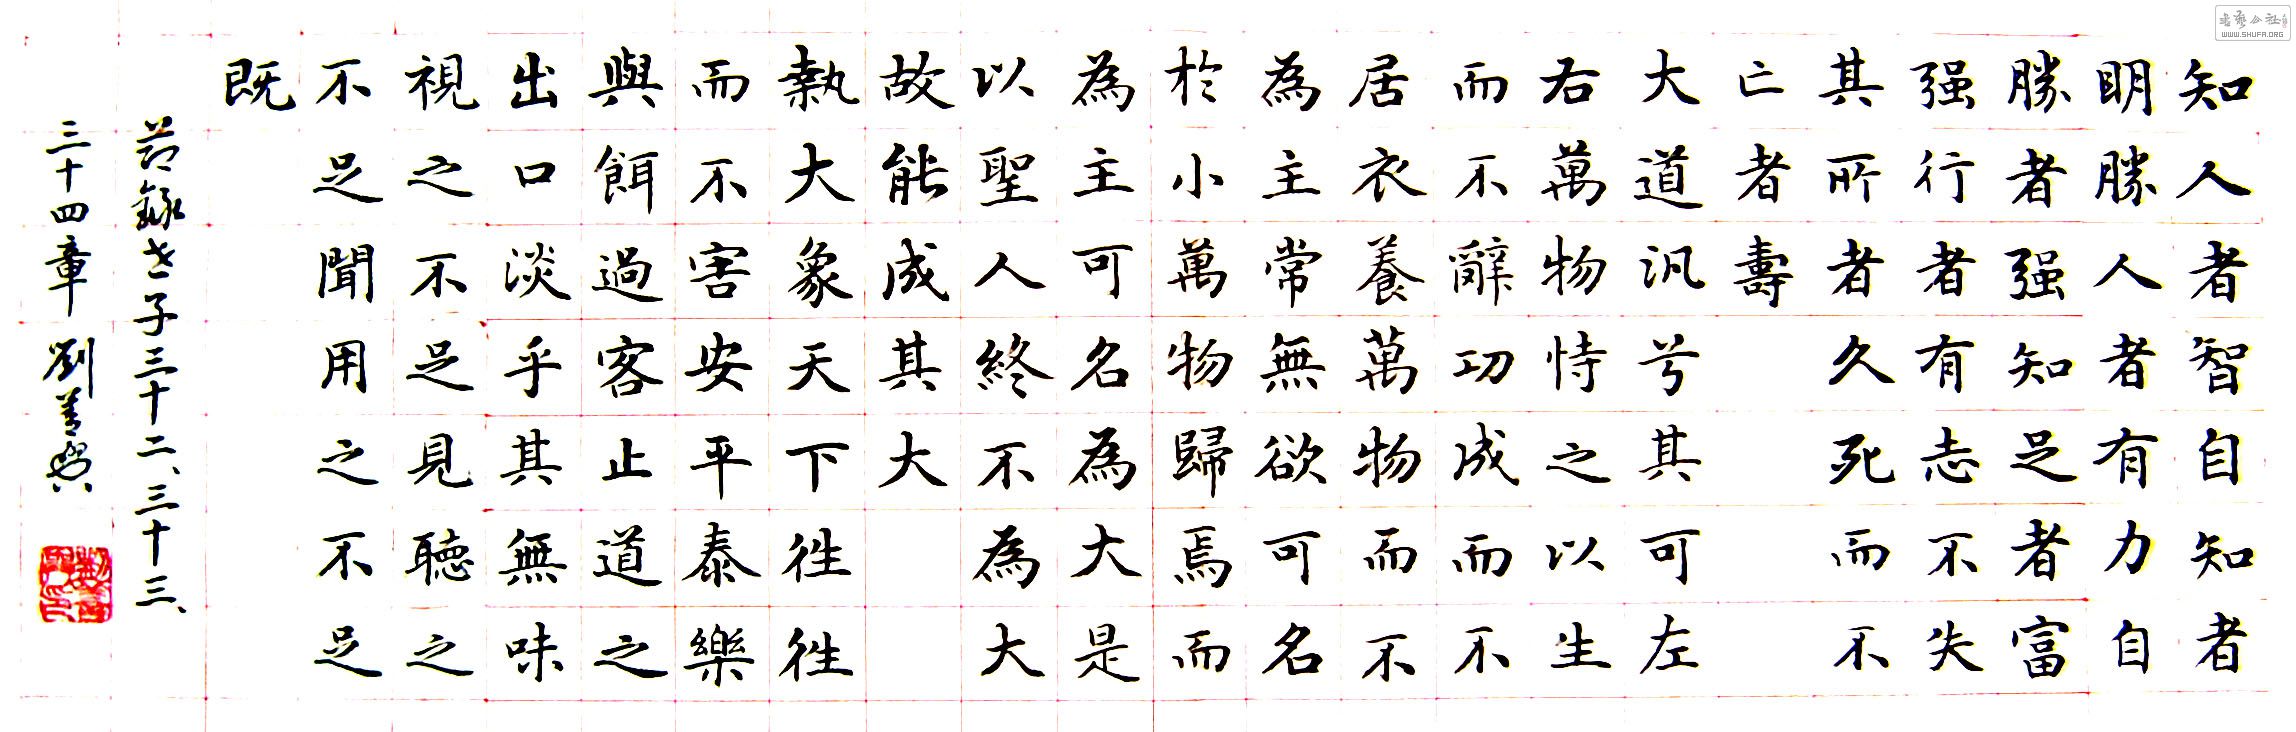 知人者智自知者
明勝人者有力自
勝者强知足者富
强行者有志不失
其所者久死而不
亡者壽
大道汎兮其可左
右萬物恃之以生
而不辭功成而不
居衣養萬物而不
為主常無欲可名
於小萬物歸焉而
為主可名為大是
以聖人終不為大
故能成其大
執大象天下往往
而不害安平泰樂
與餌過客止道之
出口淡乎其無味
視之不足見聽之
不足聞用之不足
既
節錄老子三十二、三十三、
三十四章 劉善興
书艺公社
WWW.SHUFA.ORG